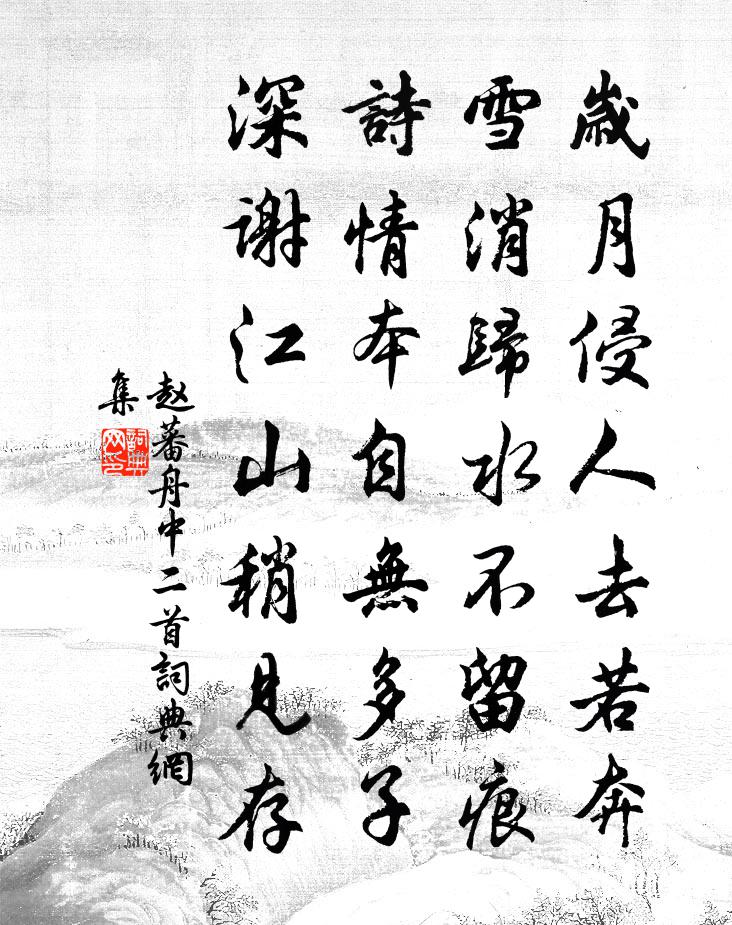 歲月侵人去若奔
雪消歸水不留痕
詩情本自無多子
深谢江山稍見存
赵蕃舟中二首詞典網
集
詞典
网印